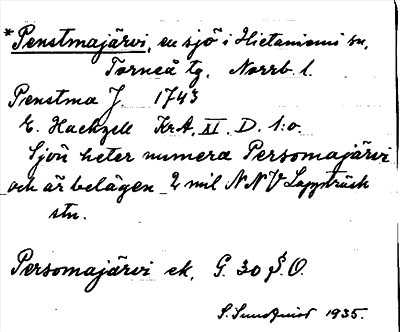 *Penstmajärvi, en sjö i Hietaniemi sn,
Torneå tg. Norrb. l.
Penstma J. 1743
E. Hackzell KrA, XI. D. 1:o.
Sjön heter numera Personmajärvi
och är belägen 2 mil NNV Lappträsk
stn.
Personmajärvi ek. G. 30 S.O.
S. 1935.